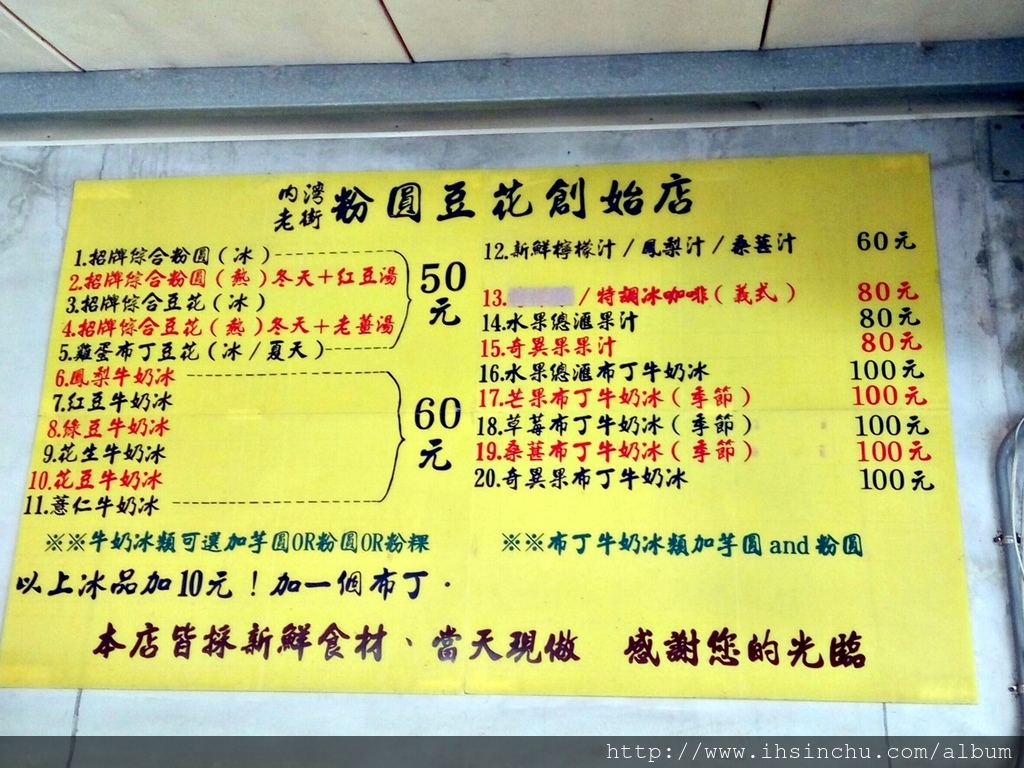 內灣老街 粉圓豆花創始店
1.招牌綜合粉圓(冰)
2.招牌綜合粉圓(熱)冬天+紅豆湯
3.招牌綜合豆花(冰)
4.招牌綜合豆花(熱)冬天+老薑湯
5.雞蛋布丁豆花(冰/夏天)
50元
6.鳳梨牛奶冰
7.紅豆牛奶冰
8.綠豆牛奶冰
9.花生牛奶冰
10.花豆牛奶冰
11.薏仁牛奶冰
60元
※※牛奶冰類可選加芋圓OR粉圓OR粉粿
以上冰品加10元!加一個布丁.
12.新鮮檸檬汁/鳳梨汁/桑葚汁 60元
13. /特調冰咖啡(義式) 80元
14.水果總滙果汁 80元
15.奇異果果汁 80元
16.水果總滙布丁牛奶冰 100元
17.芒果布丁牛奶冰(季節) 100元
18.草莓布丁牛奶冰(季節) 100元
19.桑葚布丁牛奶冰(季節) 100元
20.奇異果布丁牛奶冰 100元
※※布丁牛奶冰類加芋圓and粉圓
本店皆採新鮮食材、當天現做 感謝您的光臨
http://www.ihsinchu.com/album